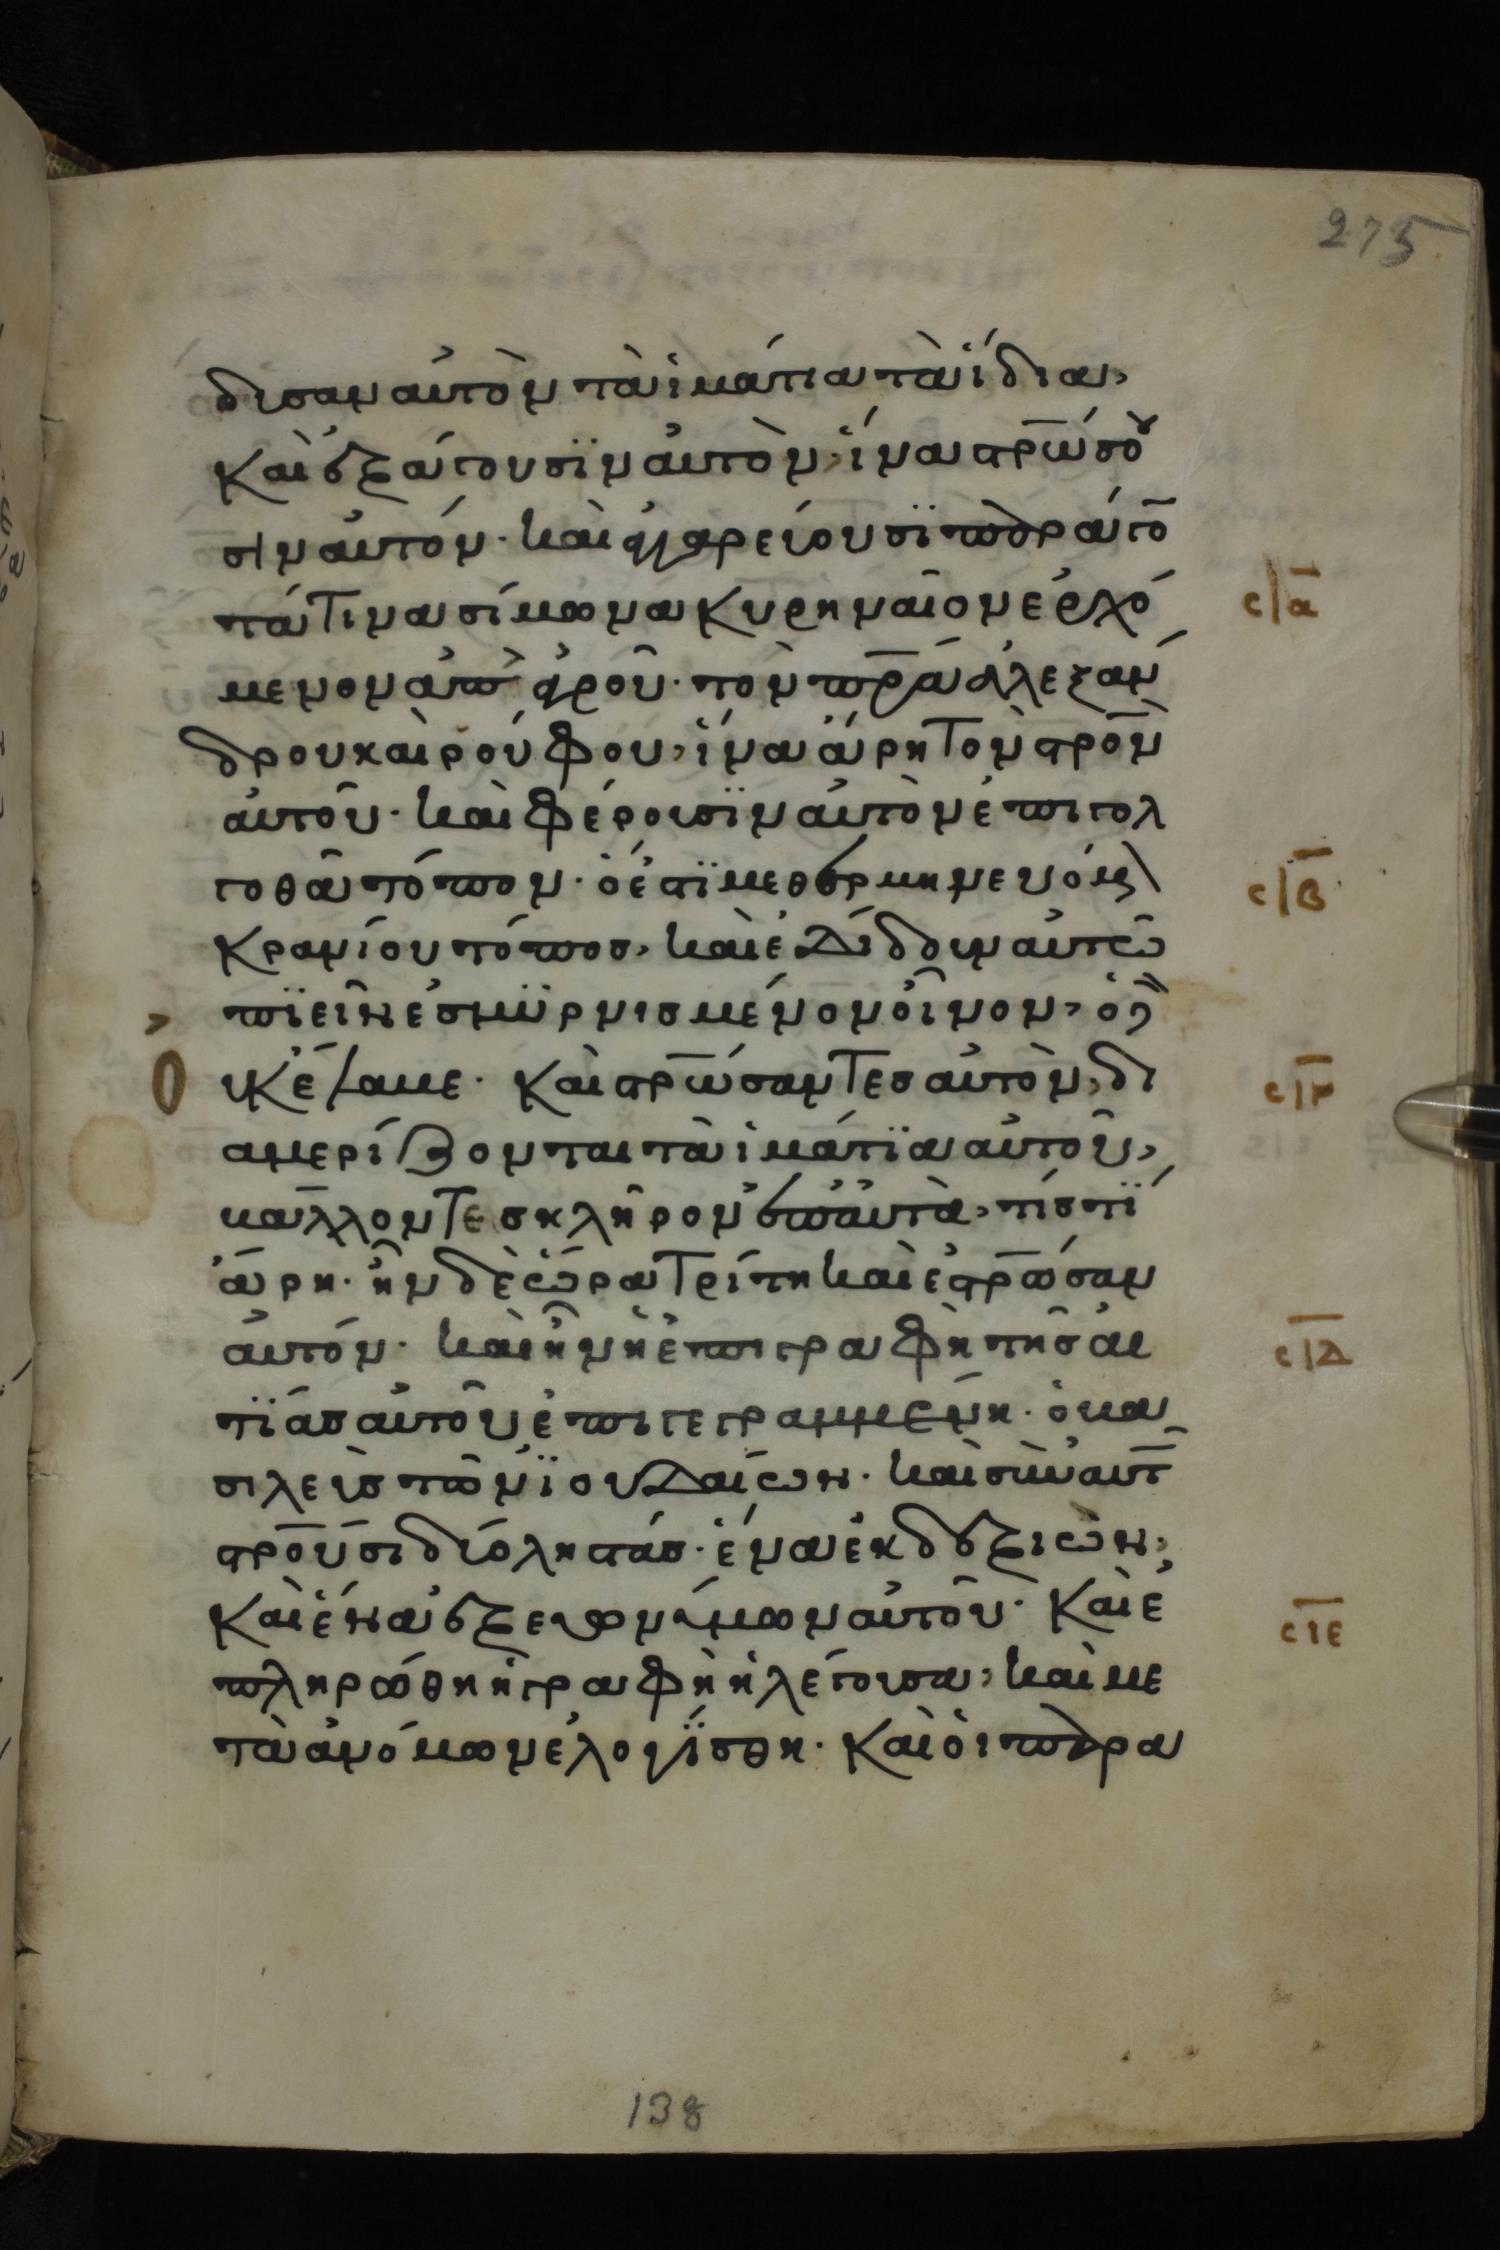 275
δυσαν αὐτὸν τὰ ἱμάτια τὰ ἴδια,
καὶ ἐξάγουσϊν αὐτὸν, ἵνα στρ̅ώσου
σιν αὐτόν· καὶ ἀγγαρεύουσϊ παράγο̅
τά τινα σίμωνα κυρηναῖον ἐρχό
μενον ἀπὸ ἀγροῦ· τὸν π̅ρ̅α ἀλεξάν
δρου καὶ ρούφου, ἵνα ἄρη τὸν στρ̅ο̅ν
αὐτοῦ· καὶ φέρουσϊν αὐτὸν ἐπι γολ
γοθᾶ τόπον· ὅ ἐστϊ μεθερμηνευόμε
c/α̅
κρανίου τόπος, καὶ ἐδίδουν αὐτῶ
c/β̅
πϊεῖν ἐσμϋρνισμένον οἶνον, ὁ δὲ
οὐκ ἔλαβε· καὶ στρ̅ώσαντες αὐτὸν, δι
c/γ̅
αμερίζονται τὰ ἱμάτϊα αὐτοῦ,
βάλλοντες κλῆρον ἐπ' αὐτὰ, τίς τϊ
ἄρη· ἦν δὲ ὥρα τρίτη καὶ ἐστρ̅ωσαν
αὐτόν· καὶ ἦν ἡ ἐπιγραφὴ τῆς αἰ
c/δ̅
τϊάς αὐτοῦ ἐπιγεγραμμένη· ὁ βα
σιλεὺς τῶν ϊουδαίων· καὶ σὺν αὐτ
στρ̅οῦσι δύο ληστάς· ἕνα ἐκ δεξιῶν,
καὶ ἕνα ἐξ εὐωνύμων αὐτοῦ· καὶ ἐ
c/ε̅
πληρώθη ἡ γραφὴ ἡ λέγουσα, καὶ με
τὰ ἀνόμων ἐλογΐσθη· καὶ οἱ παρα
138